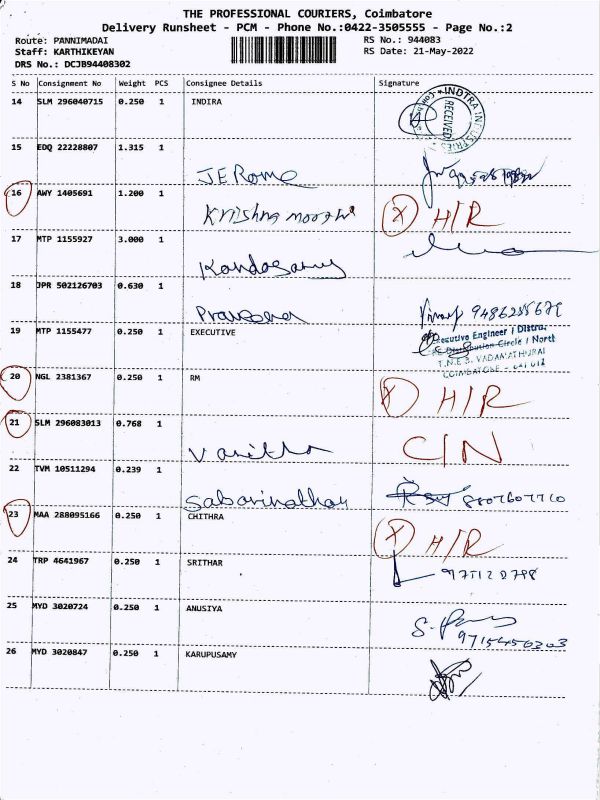 THE PROFESSIONAL COURIERS, Coimbatore
Delivery Runsheet - PCM - Phone No.:0422-3505555 - Page No.:2
Route: PANNIMADAI RS No.: 944083
Staff: KARTHIKEYAN RS Date: 21-May-2022
DRS No.: DCJB94408302
S No Consignment No Weight PCS Consignee Details Signature
14 SLM 296040715 0.250 1 INDIRA
INDIRA INDUSTRIES RECEIVED
15 EDQ 22228807 1.315 1
JERome
16 AWY 1405691 1.200 1
Krishna moorthi X H/R
17 MTP 1155927 3.000 1
Kandasamy
18 JPR 502126703 0.630 1
Prasanna
19 MTP 1155477 0.250 1 EXECUTIVE
Executive Engineer / Distrn.
Distribution Circle / North
COIMBATORE
20 NGL 2381367 0.250 1 RM
X H/R
21 SLM 296083013 0.768 1
Vanitha C/N
22 TVM 10511294 0.239 1
Sabarinathan 8807607710
23 MAA 288095166 0.250 1 CHITHRA
X H/R
24 TRP 4641967 0.250 1 SRITHAR
25 MYD 3020724 0.250 1 ANUSIYA
26 MYD 3020847 0.250 1 KARUPUSAMY